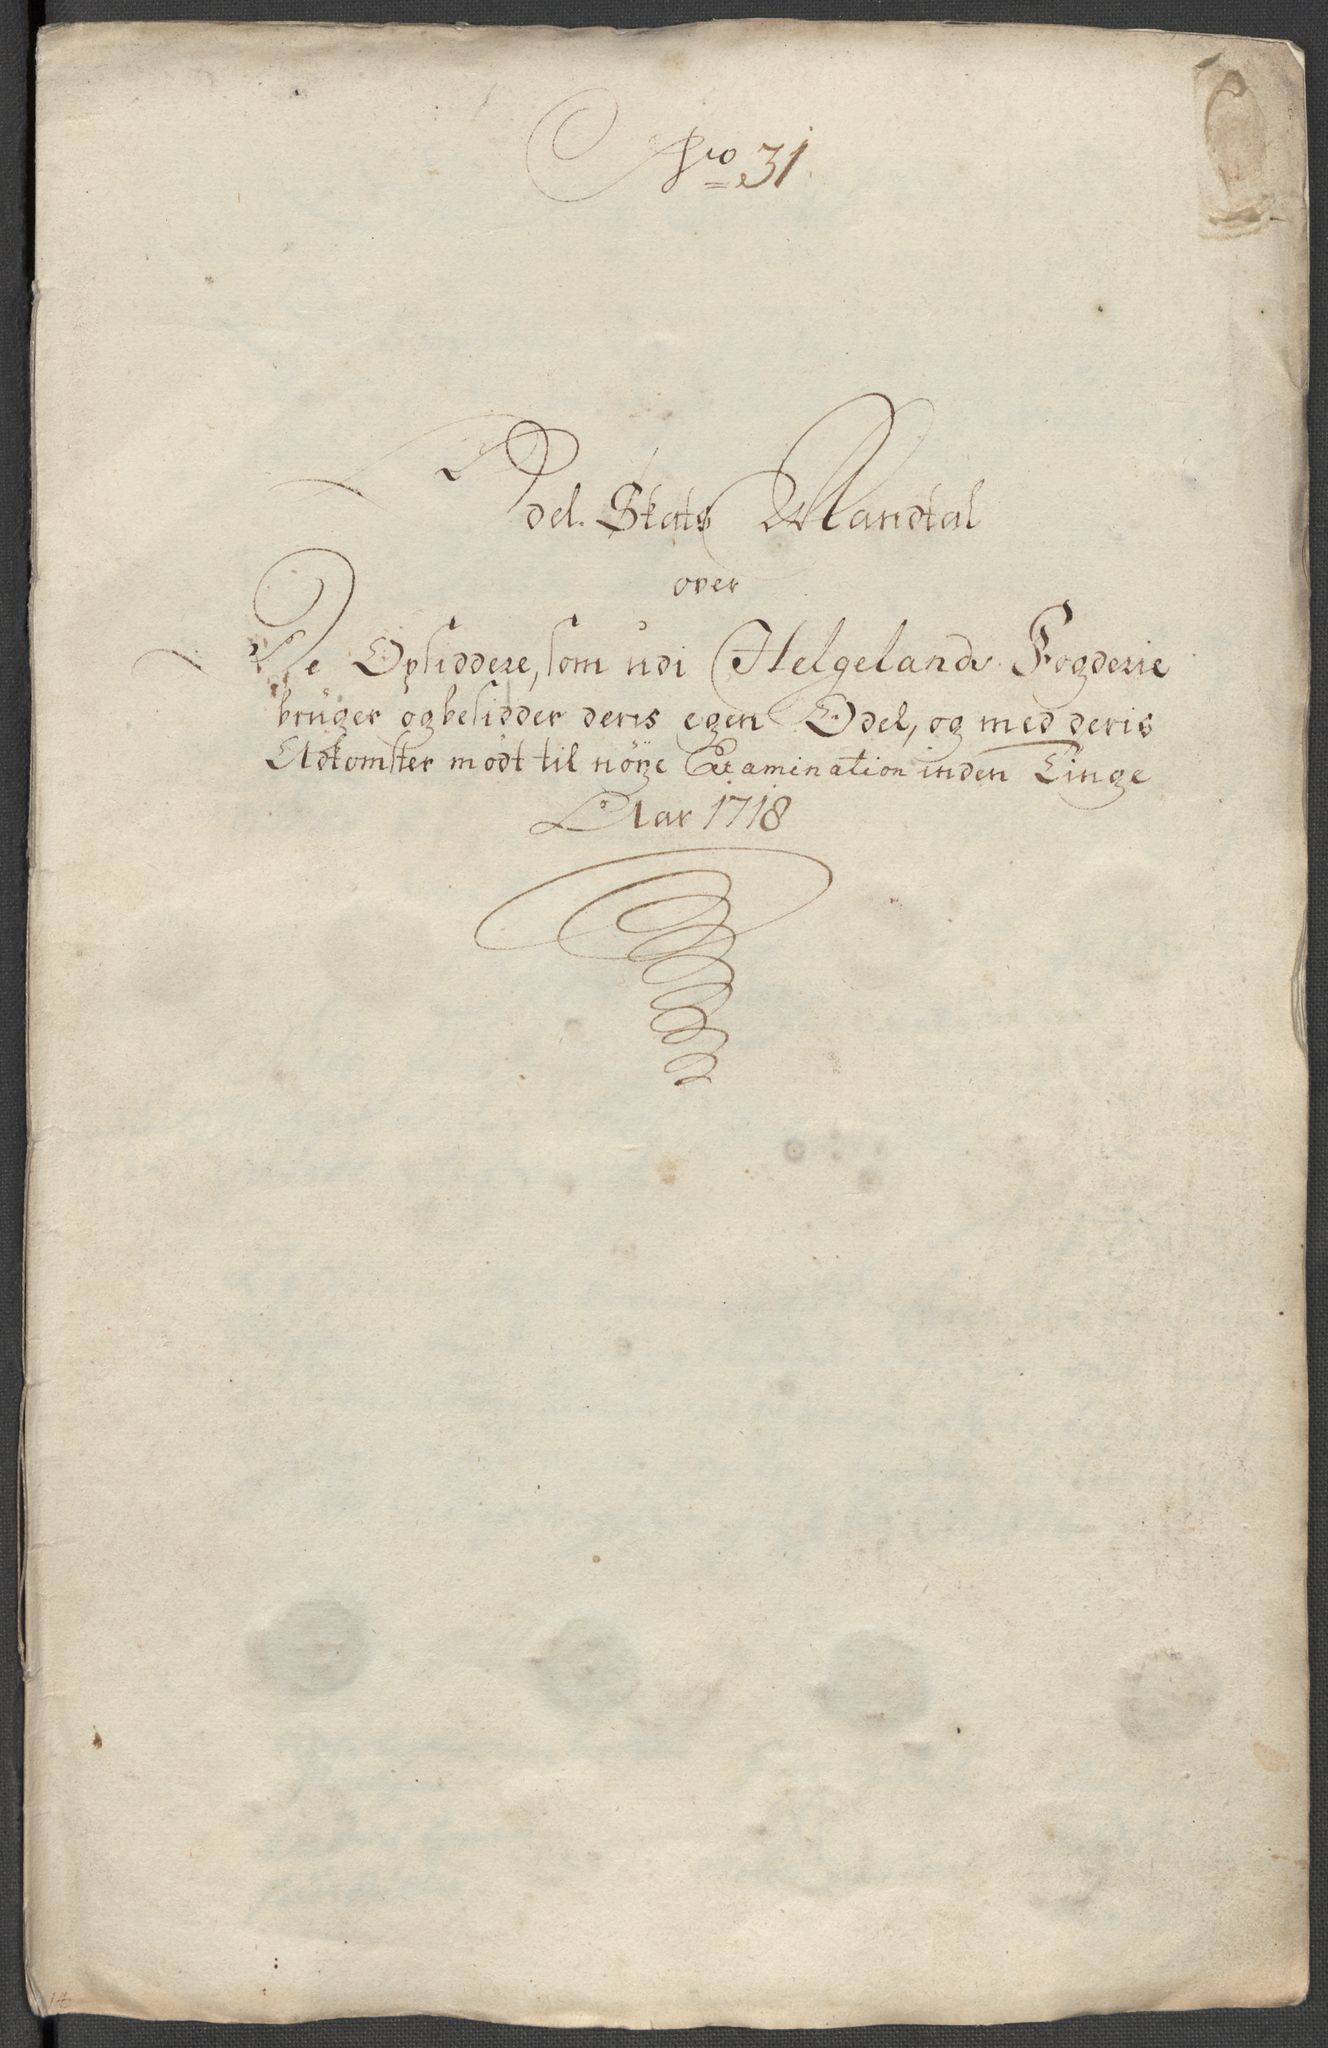 No 31
Odel. Skats Mandtal
over
De Opsiddere, som udi Helgelands Fogderie
brüger og besidder deris egen Odel, og med deris
Adkomster mødt til nöÿe Examination inden Tinge
Aar 1718
14